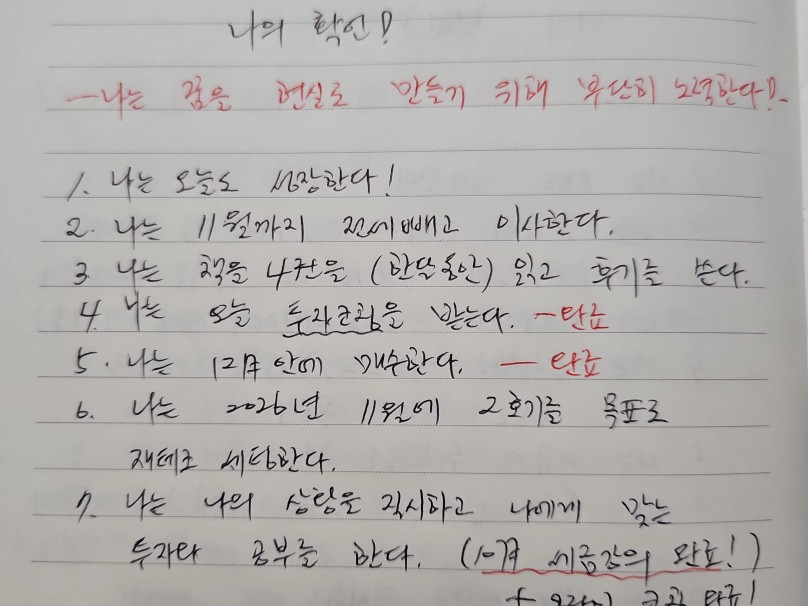 나의 확언!
- 나는 꿈을 현실로 만들기 위해 부단히 노력한다! -
1. 나는 오늘도 성장한다!
2. 나는 11월까지 전세빼고 이사한다.
3. 나는 책을 4권을 (한달동안) 읽고 후기를 쓴다.
4. 나는 오늘 투자코칭을 받는다. - 완료
5. 나는 12月 안에 매수한다. - 완료
6. 나는 2026년 11월에 2호기를 목표로
재테크 세팅한다.
7. 나는 나의 상황을 직시하고 나에게 맞는
투자와 공부를 한다. (10月 세금강의 완료!)
+